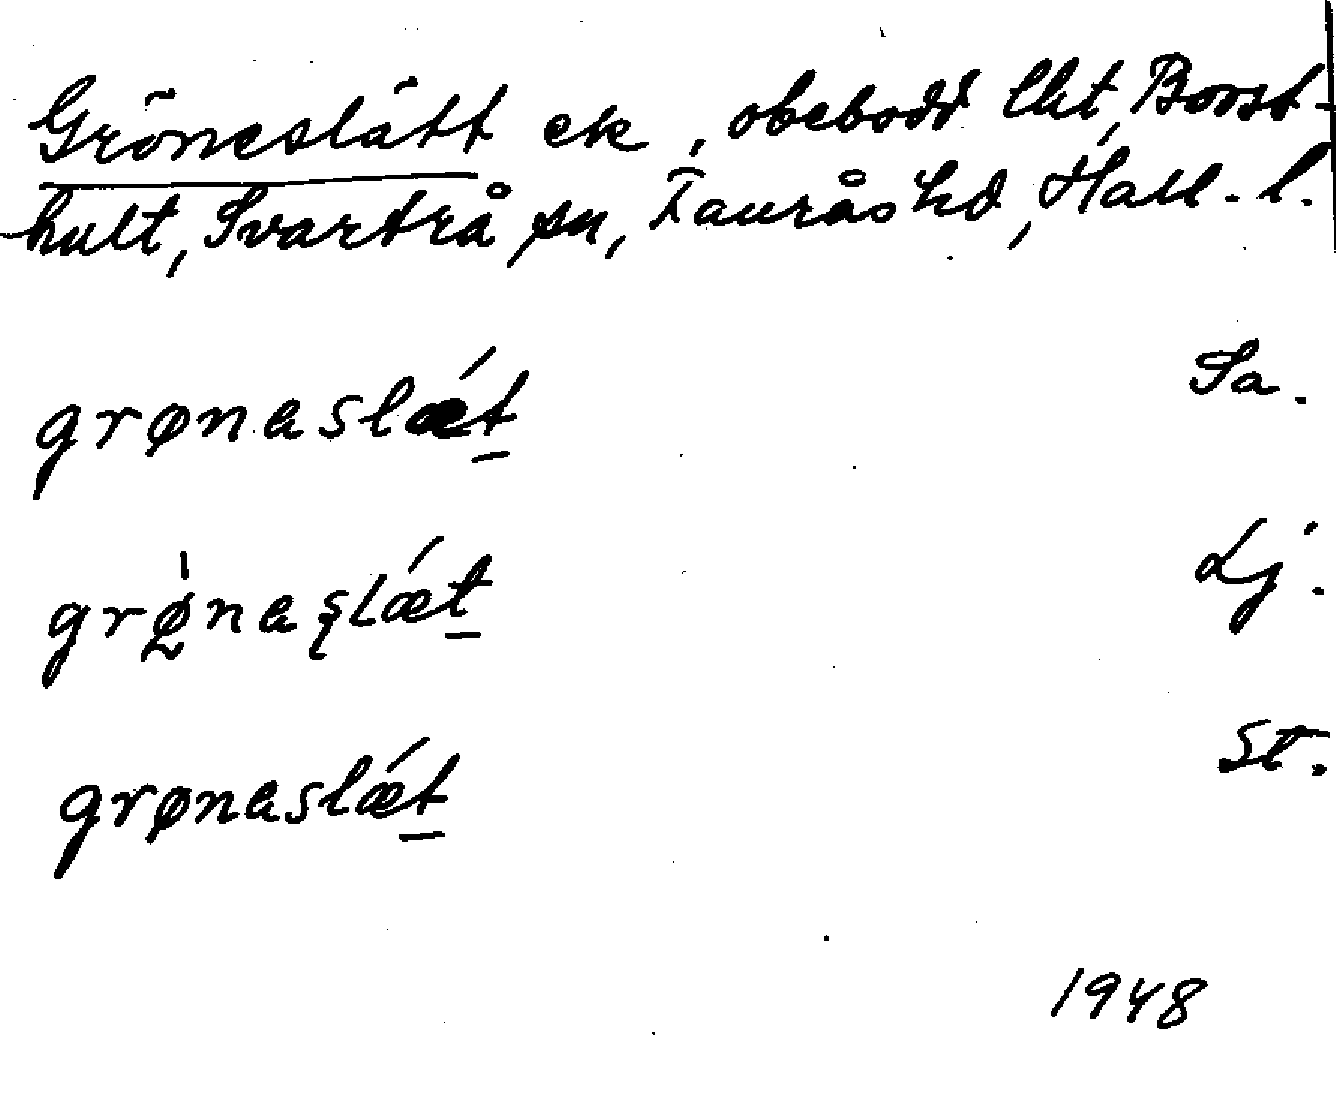 Gröneslätt ek, obebodd lht, Borst-
hult, Svartrå sn, Faurås hd, Hall. l.
grønaslǽt Sa.
grø̀naslǽt Lj.
grønaslǽt St.
1948